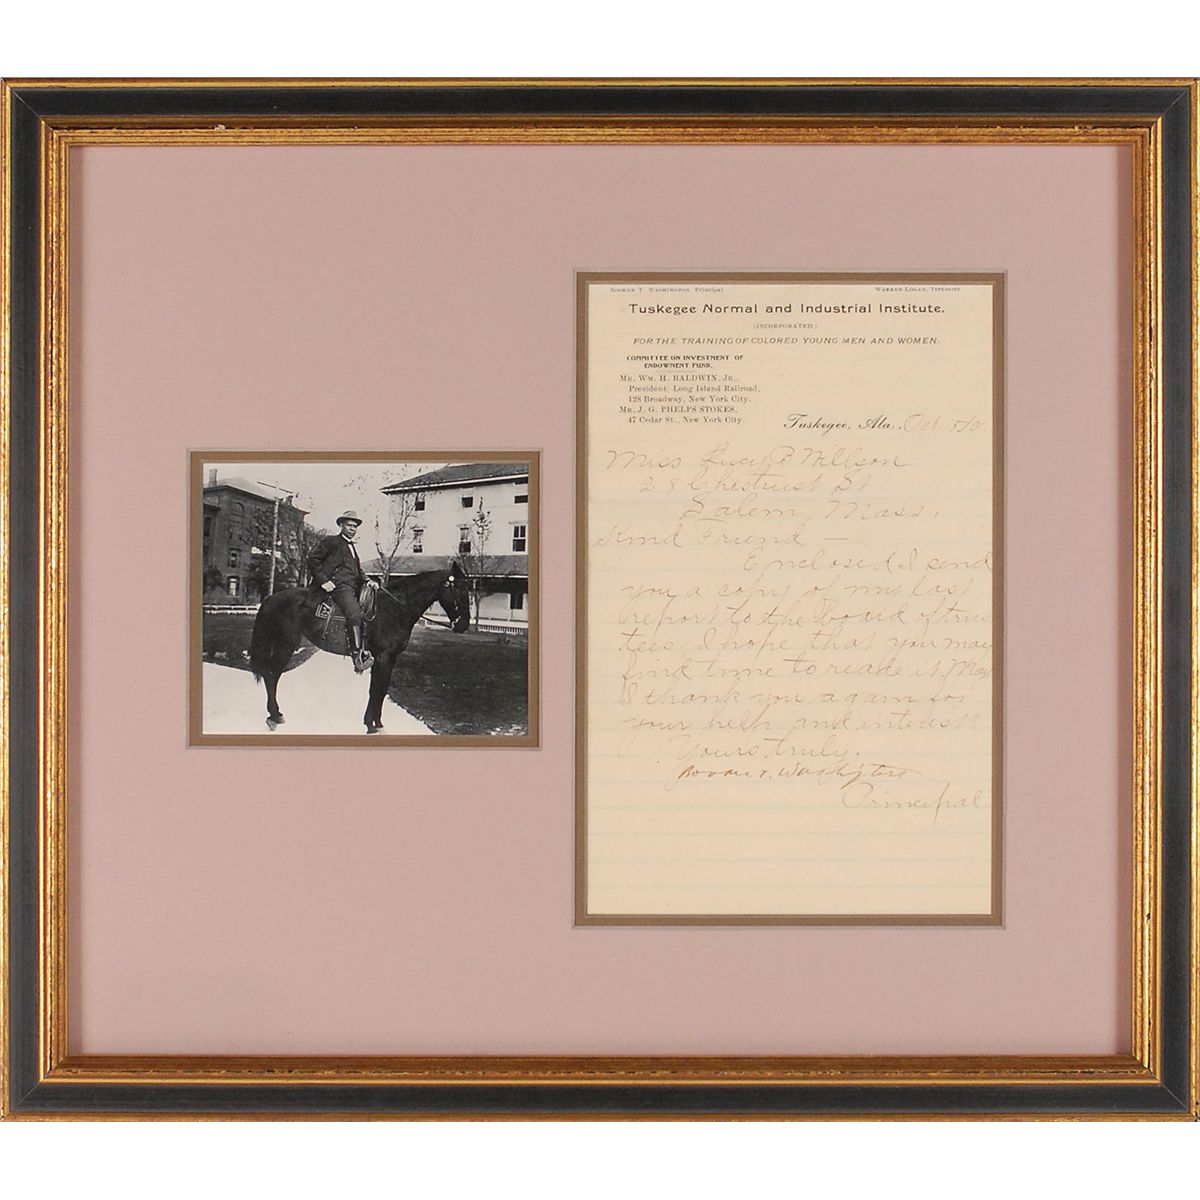 BOOKER T. WASHINGTON, Principal. WARREN LOGAN, Treasurer
Tuskegee Normal and Industrial Institute.
(INCORPORATED)
FOR THE TRAINING OF COLORED YOUNG MEN AND WOMEN.
COMMITTEE ON INVESTMENT OF
ENDOWMENT FUND,
MR. WM. H. BALDWIN, JR.,
President, Long Island Railroad,
128 Broadway, New York City.
MR. J. G. PHELPS STOKES,
47 Cedar St., New York City.
Tuskegee, Ala., Oct.
Miss Lucy B Willson
28 Chestnust St
Salem, Mass.,
Kind Friend —
Enclosed I send
you a copy of my last
report to the board of trus
tees. I hope that you may
find time to reade it. May
I thank you again for
your help and interest?
Yours truly,
Booker T. Washington
Principal